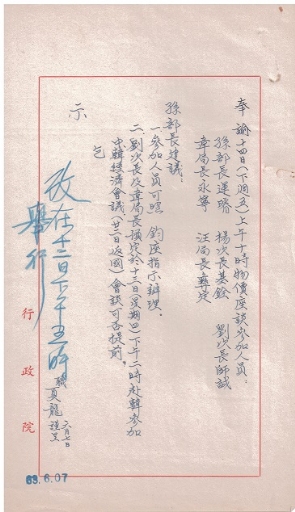 奉諭十四日(下週五)上午十時物價座談參加人員:
孫部長運璿 楊次長基銓 劉次長師誠
韋局長永寧 汪局長彝定
孫部長建議:
一、參加人員可照 鈞座指示辦理。
二、劉次長及韋局長預定於十三日(星期四)下午二時赴韓參加
中韓經濟會議(廿二日返國)會談可否提前。
乞
示
職 夏龍 謹呈 六月七日
改在十二日下午五時
舉行
行政院
63.6.07